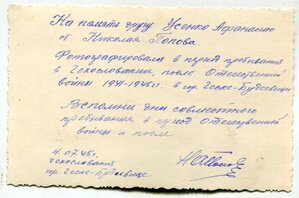 На память другу Усенко Афанасию
от Николая Попова.
Фотографировались в период пребывания
в Чехословакии, после Отечественной
войны 1941-1945г. в гор. Ческе-Будеевице
Вспомни дни совместного
пребывания в период Отечественной
войны и после
4.07.45г.
Чехословакия
гор. Ческе-Будеевице